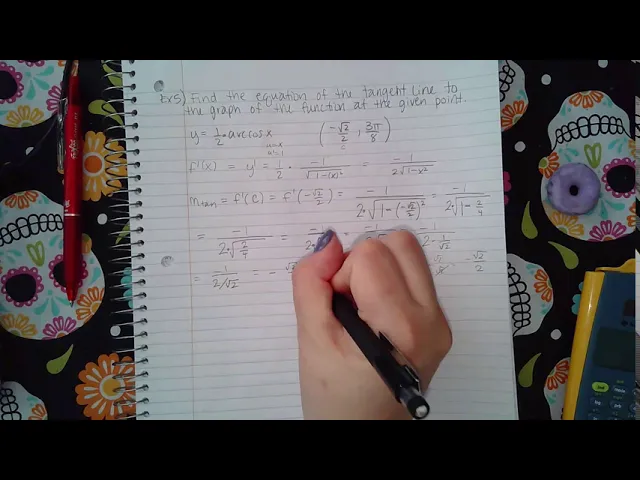 Ex5) Find the equation of the tangent line to
the graph of the function at the given point.
y = 1/2 · arccos x (-√2/2, 3π/8)
u=x
u'=1
f'(x) = y' = 1/2 · -1/√(1-(x)²) = -1/(2√(1-x²))
m tan = f'(c) = f'(-√2/2) = -1/(2·√(1-(-√2/2)²)) = -1/(2·√(1-2/4))
= -1/(2·√(2/4)) = = = -1/(2·1/√2)
= 1/(2/√2) = - -√2/2